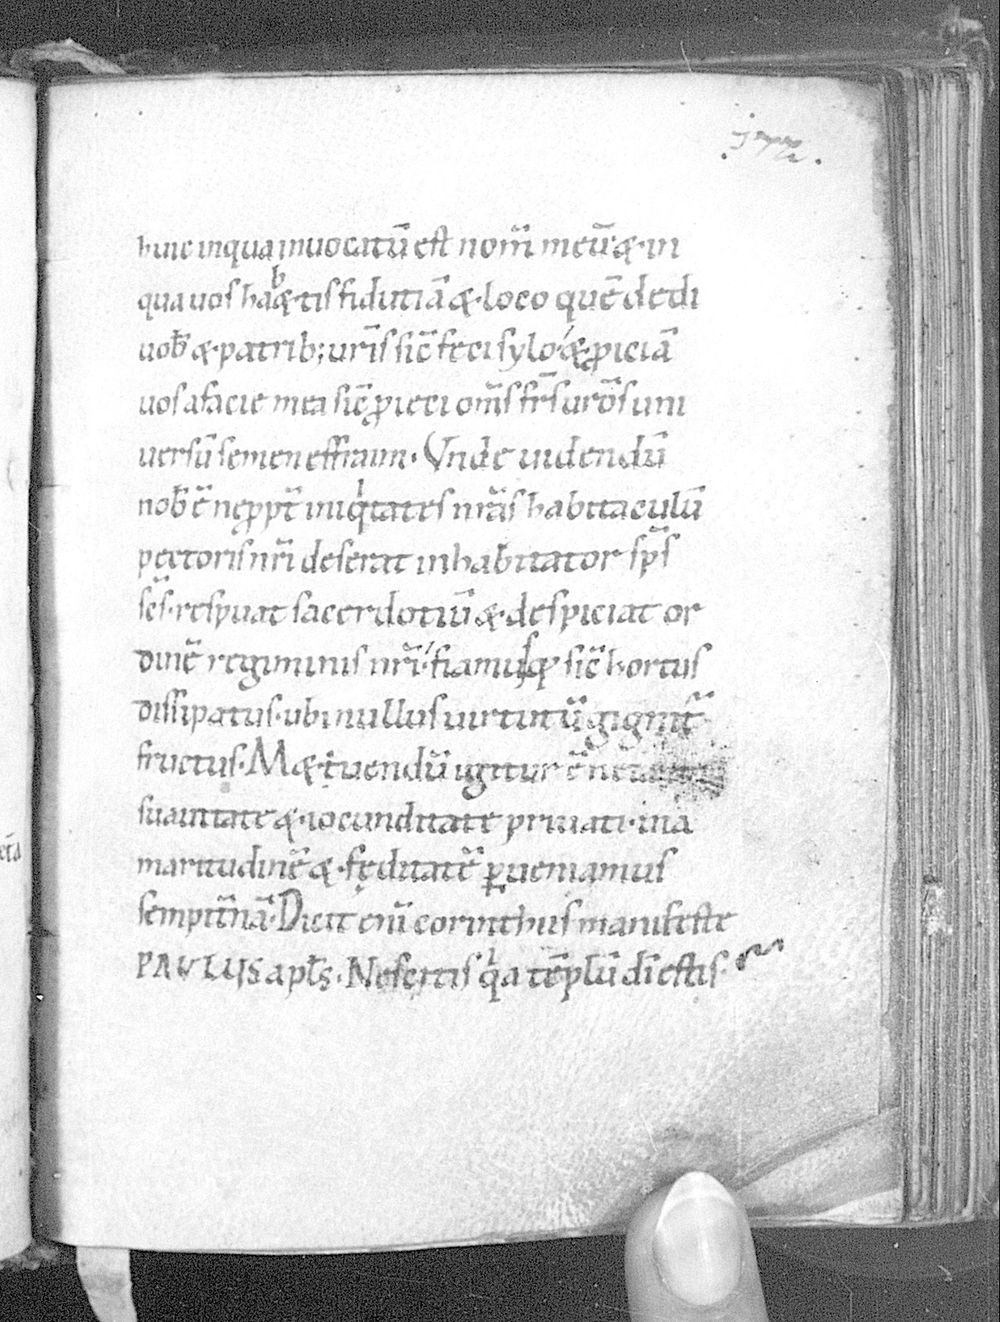 huic inqua inuocatū est nom̄ meū & in
qua uos hab&tis fidutiā & loco quē dedi
uob̄ & patrib; ur̄is sic̄ feci sylo & ꝓiciā
uos a facie mea sic̄ ꝓieci om̄s fr̄s ur̄os uni
uersū semen effraim. Vnde uidendū
nob̄ ē ne ꝓpt̄ iniqͥtates nr̄as habitaculū
pectoris nr̄i deserat inhabitator sp̄s
sc̄s. respuat sacerdotiū & despiciat or
dinē regiminis nr̄i. fiamusq; sic̄ hortus
dissipatus. ubi nullus uirtutū gignit̄
fructus. M&uendū igitur ē ne
suauitate & iocunditate priuati. in a
maritudinē & fęditatē ꝑueniamus
sempit̄nā. Dicit eni̅ corinthiis manifeste
PAULUS apl̄s. Nescitis qͥa tēplū dī estis